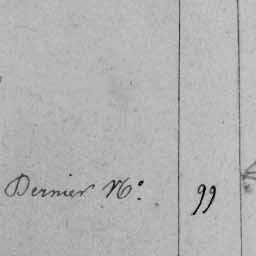 Dernier No: 99